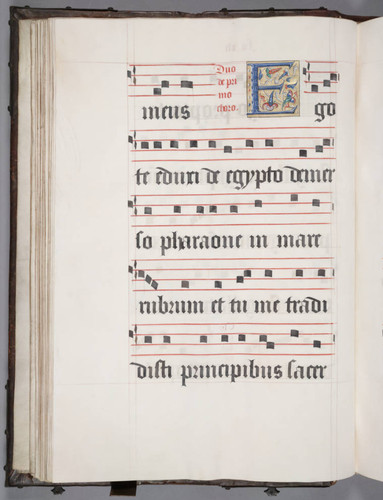 meus Duo de pri mo choro. E go
te eduxi de egypto demer
so pharaone in mare
rubrum et tu me tradi
disti principibus sacer